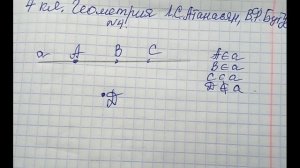 4 кл. Геометрия Л.С. Атанасян, В.Ф. Бутуз
№4.
a A B C
A ∈ a
B ∈ a
C ∈ a
D ∉ a
D